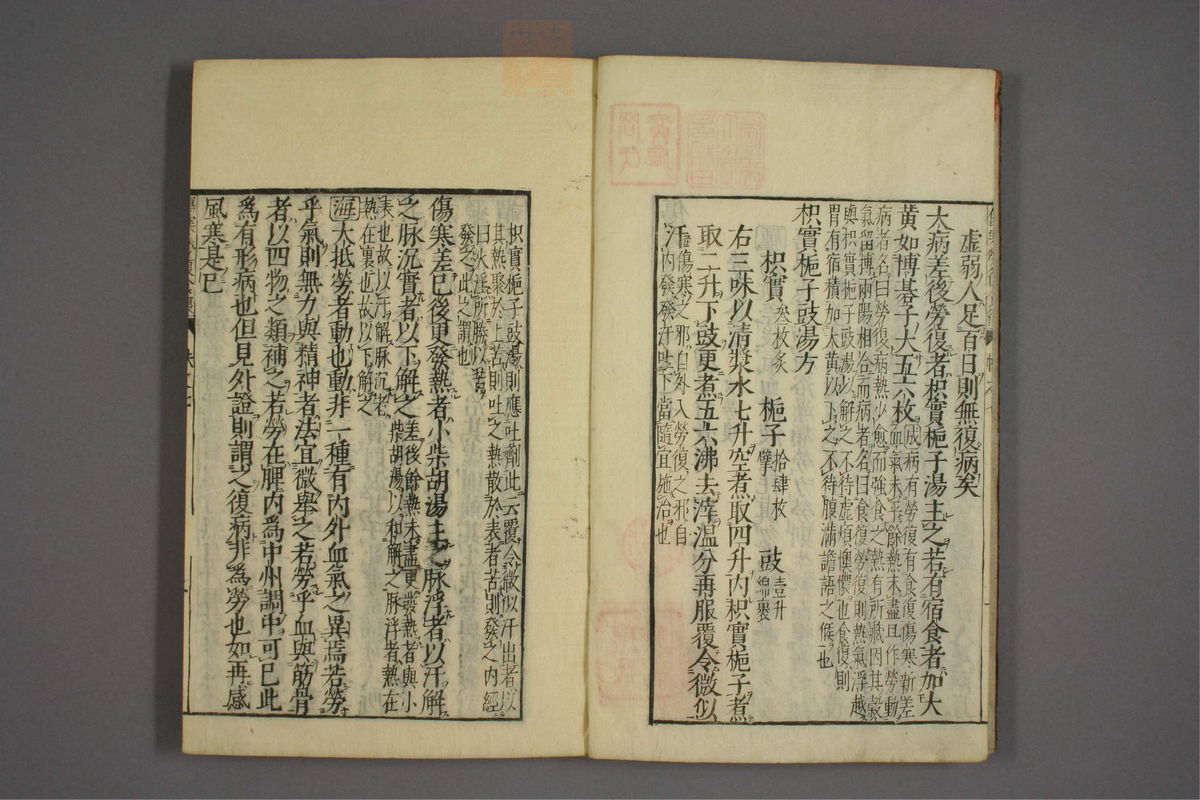 虚弱人足百日則無復病矣
大病差後勞復者枳實梔子湯主之若有宿食者加大
黄如博碁子大五六枚
成
病有勞復有食復傷寒新差
血氣未平餘熱未盡且作勞動
病者名曰勞復病熱少愈而強食之熱有所藏因其穀
氣留搏兩陽相合而病者名曰食復勞復則熱氣浮越
與枳實梔子豉湯以解之不待虚煩懊憹也食復則
胃有宿積加大黄以下之不待腹滿譫語之候也
枳實梔子豉湯方
枳實叁枚炙　梔子拾肆枚擘　豉壹升綿裹
右三味以清漿水七升空煮取四升内枳實梔子煮
取二升下豉更煮五六沸去滓温分再服覆令微似
汗
傷寒之邪自外入勞復之邪自
内發發汗吐下當隨宜施治也
枳實梔子豉湯則應吐劑此云覆令微似汗出者以
其熱聚於上苦則吐之熱散於表者苦則發之内經
曰火淫所勝以苦
發之此之謂也
傷寒差已後更發熱者小柴胡湯主之脉浮者以汗解
之脉沉實者以下解之
差後餘熱未盡更發熱者與小
柴胡湯以和解之脉浮者熱在
表也故以汗解脉沉者
熱在裏也故以下解之
海大抵勞者動也動非一種有内外血氣之異焉若勞
乎氣則無力與精神者法宜微舉之若勞乎血與筋骨
者以四物之類補之若勞在脾内爲中州調中可已此
爲有形病也但見外證則謂之復病非爲勞也如再感
風寒是已